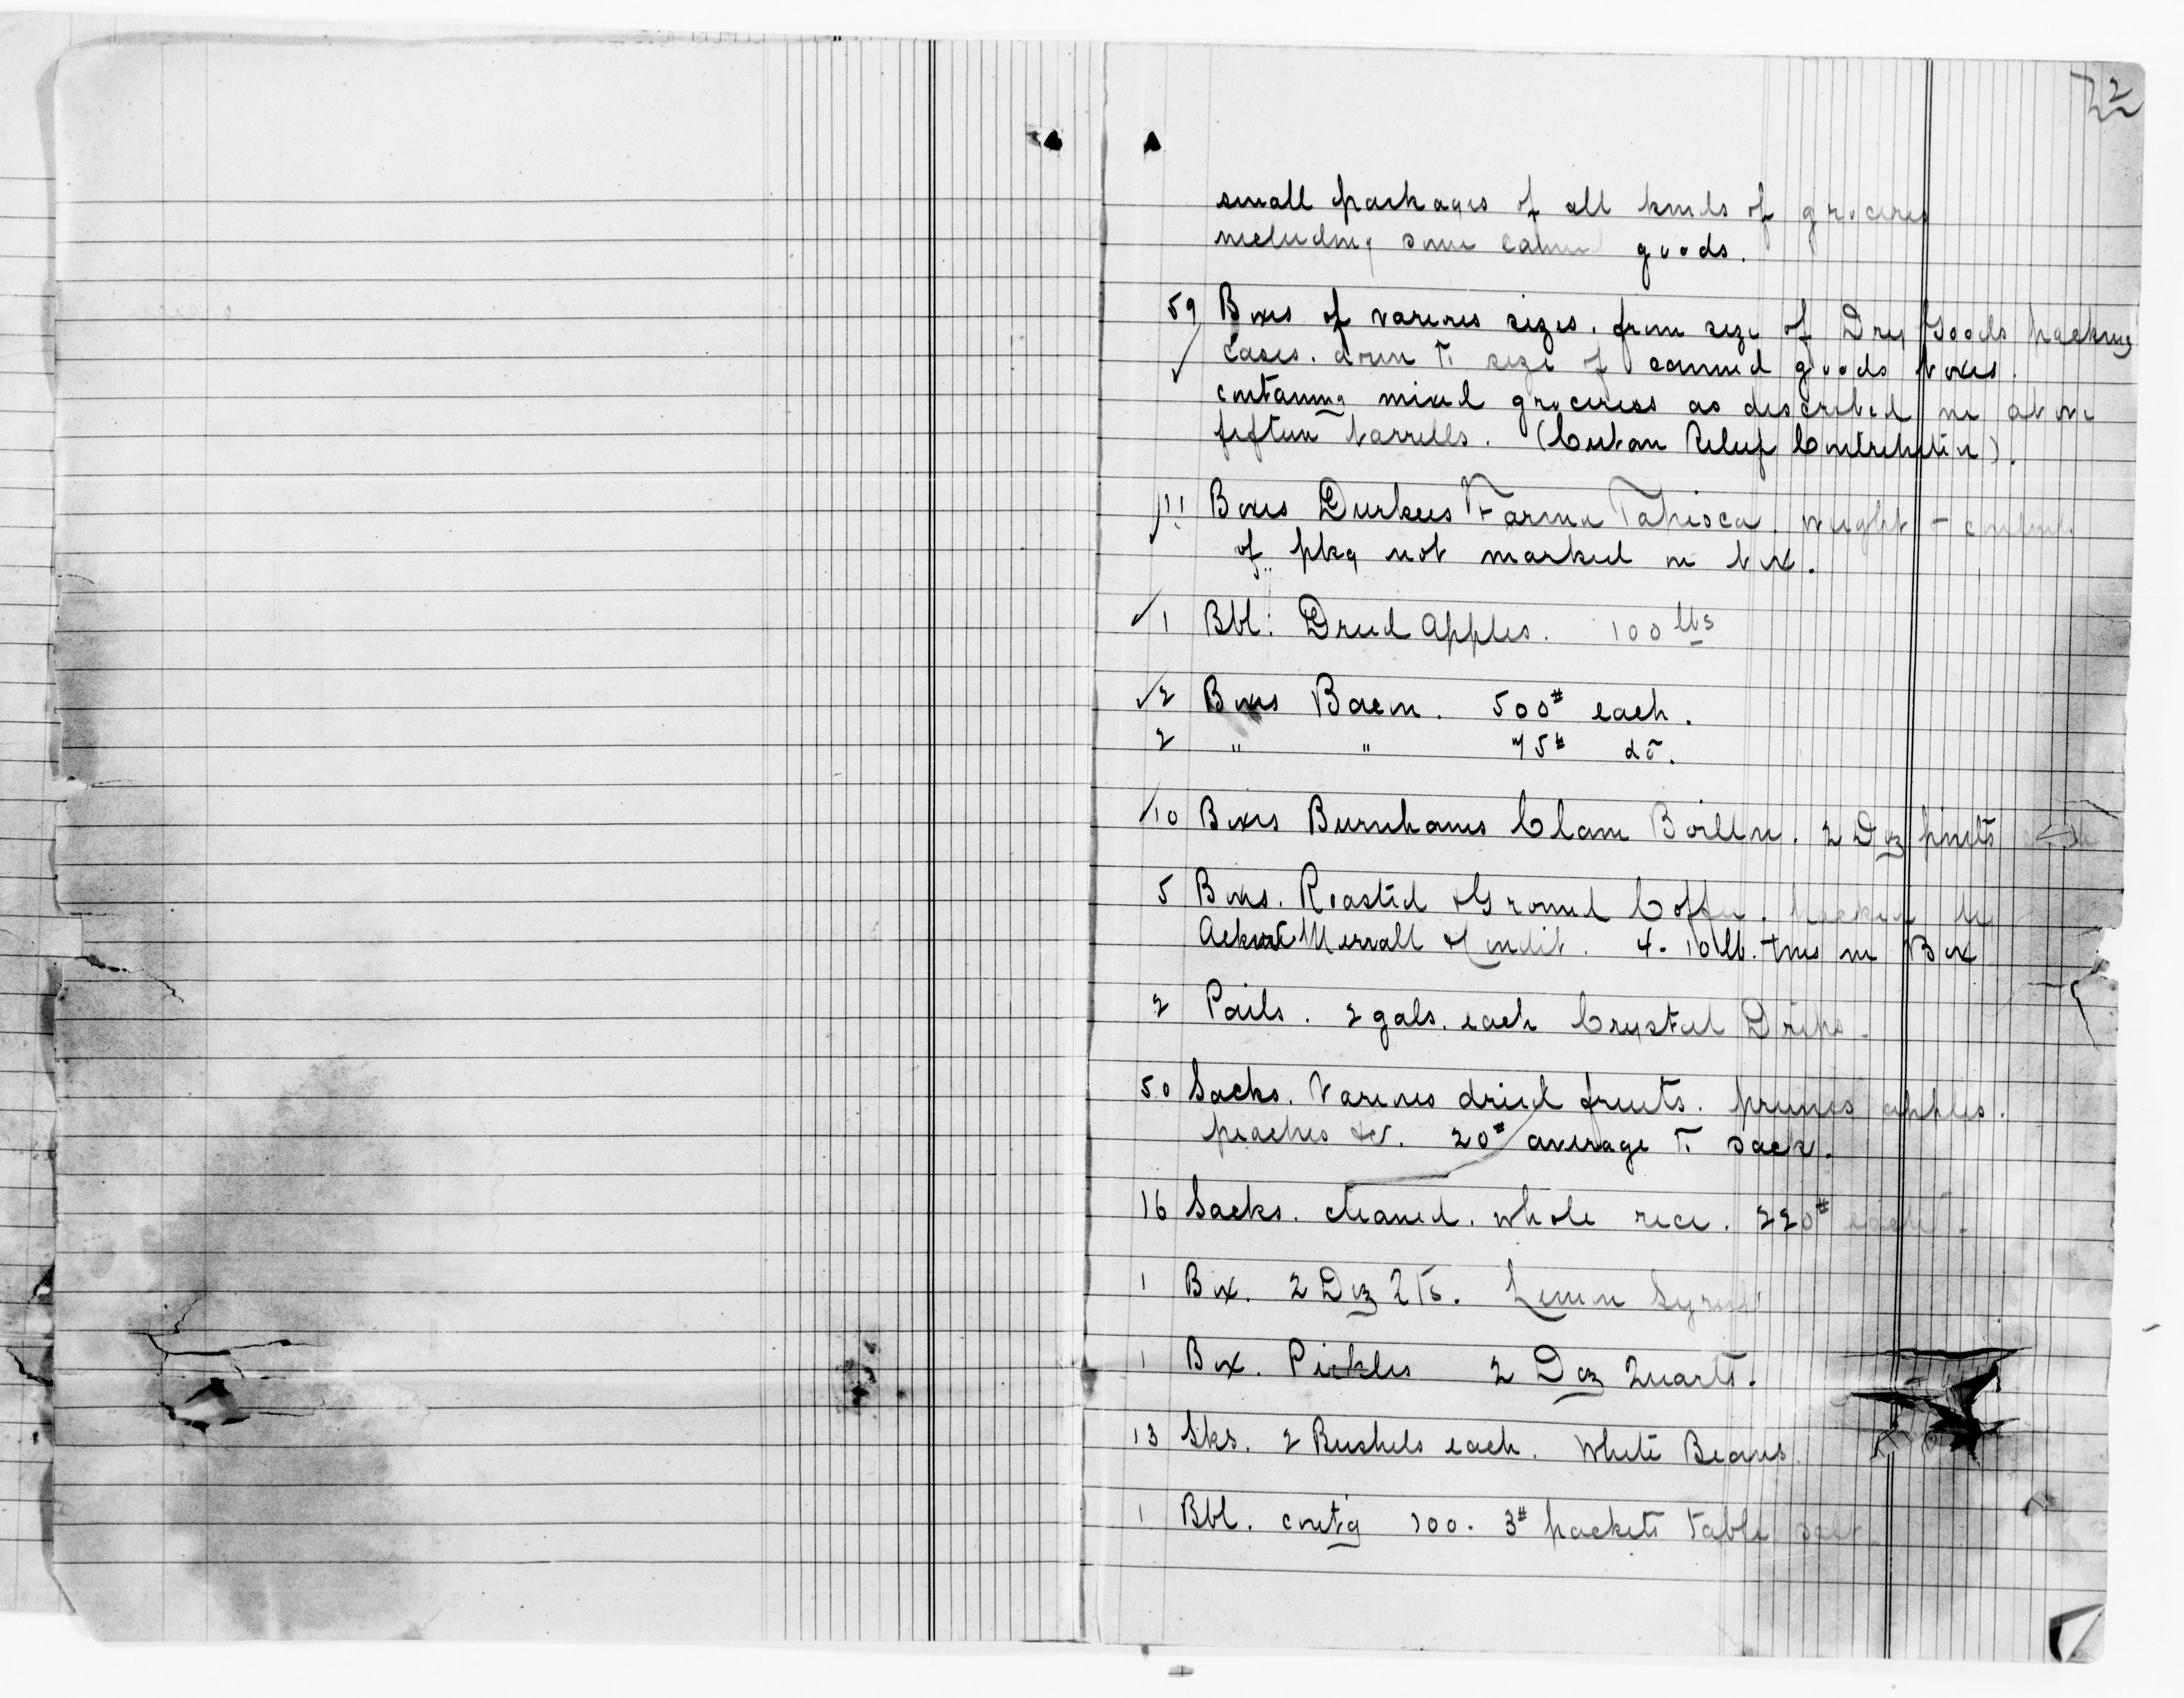 22
small packages of all kinds of groceries
including some canned goods.
59 Boxes of various sizes. from size of Dry Goods packing
cases. down to size of canned goods boxes.
containing mixed groceriess as described in above
fifteen barrells. (Cuban Relief Contribution).
11 Boxes Durkees Farina Tapioca. weight &
of pkg not marked on box.
1 Bbl: Dried Apples. 100 lbs
2 Boxes Bacon. 500# each.
2 " " 75# do.
10 Boxes Burnhams Clam Boillon. 2 Doz pints each
5 Boxes. Roasted & Ground Coffee. packed by
Acker Merrall & Condit. 4-10 lb. tins in Box
2 Pails. 2 gals. each Crystal Drips.
50 Sacks. Various dried fruits. prunes apples.
peaches &c. 20# average to sack.
16 Sacks. cleaned. whole rice. 220# each.
1 Box. 2 Doz Qts. Lemon Syrup
1 Box. Pickles 2 Doz Quarts.
13 Sks. 2 Bushels each. White Beans.
1 Bbl. contg 100. 3# packets table salt